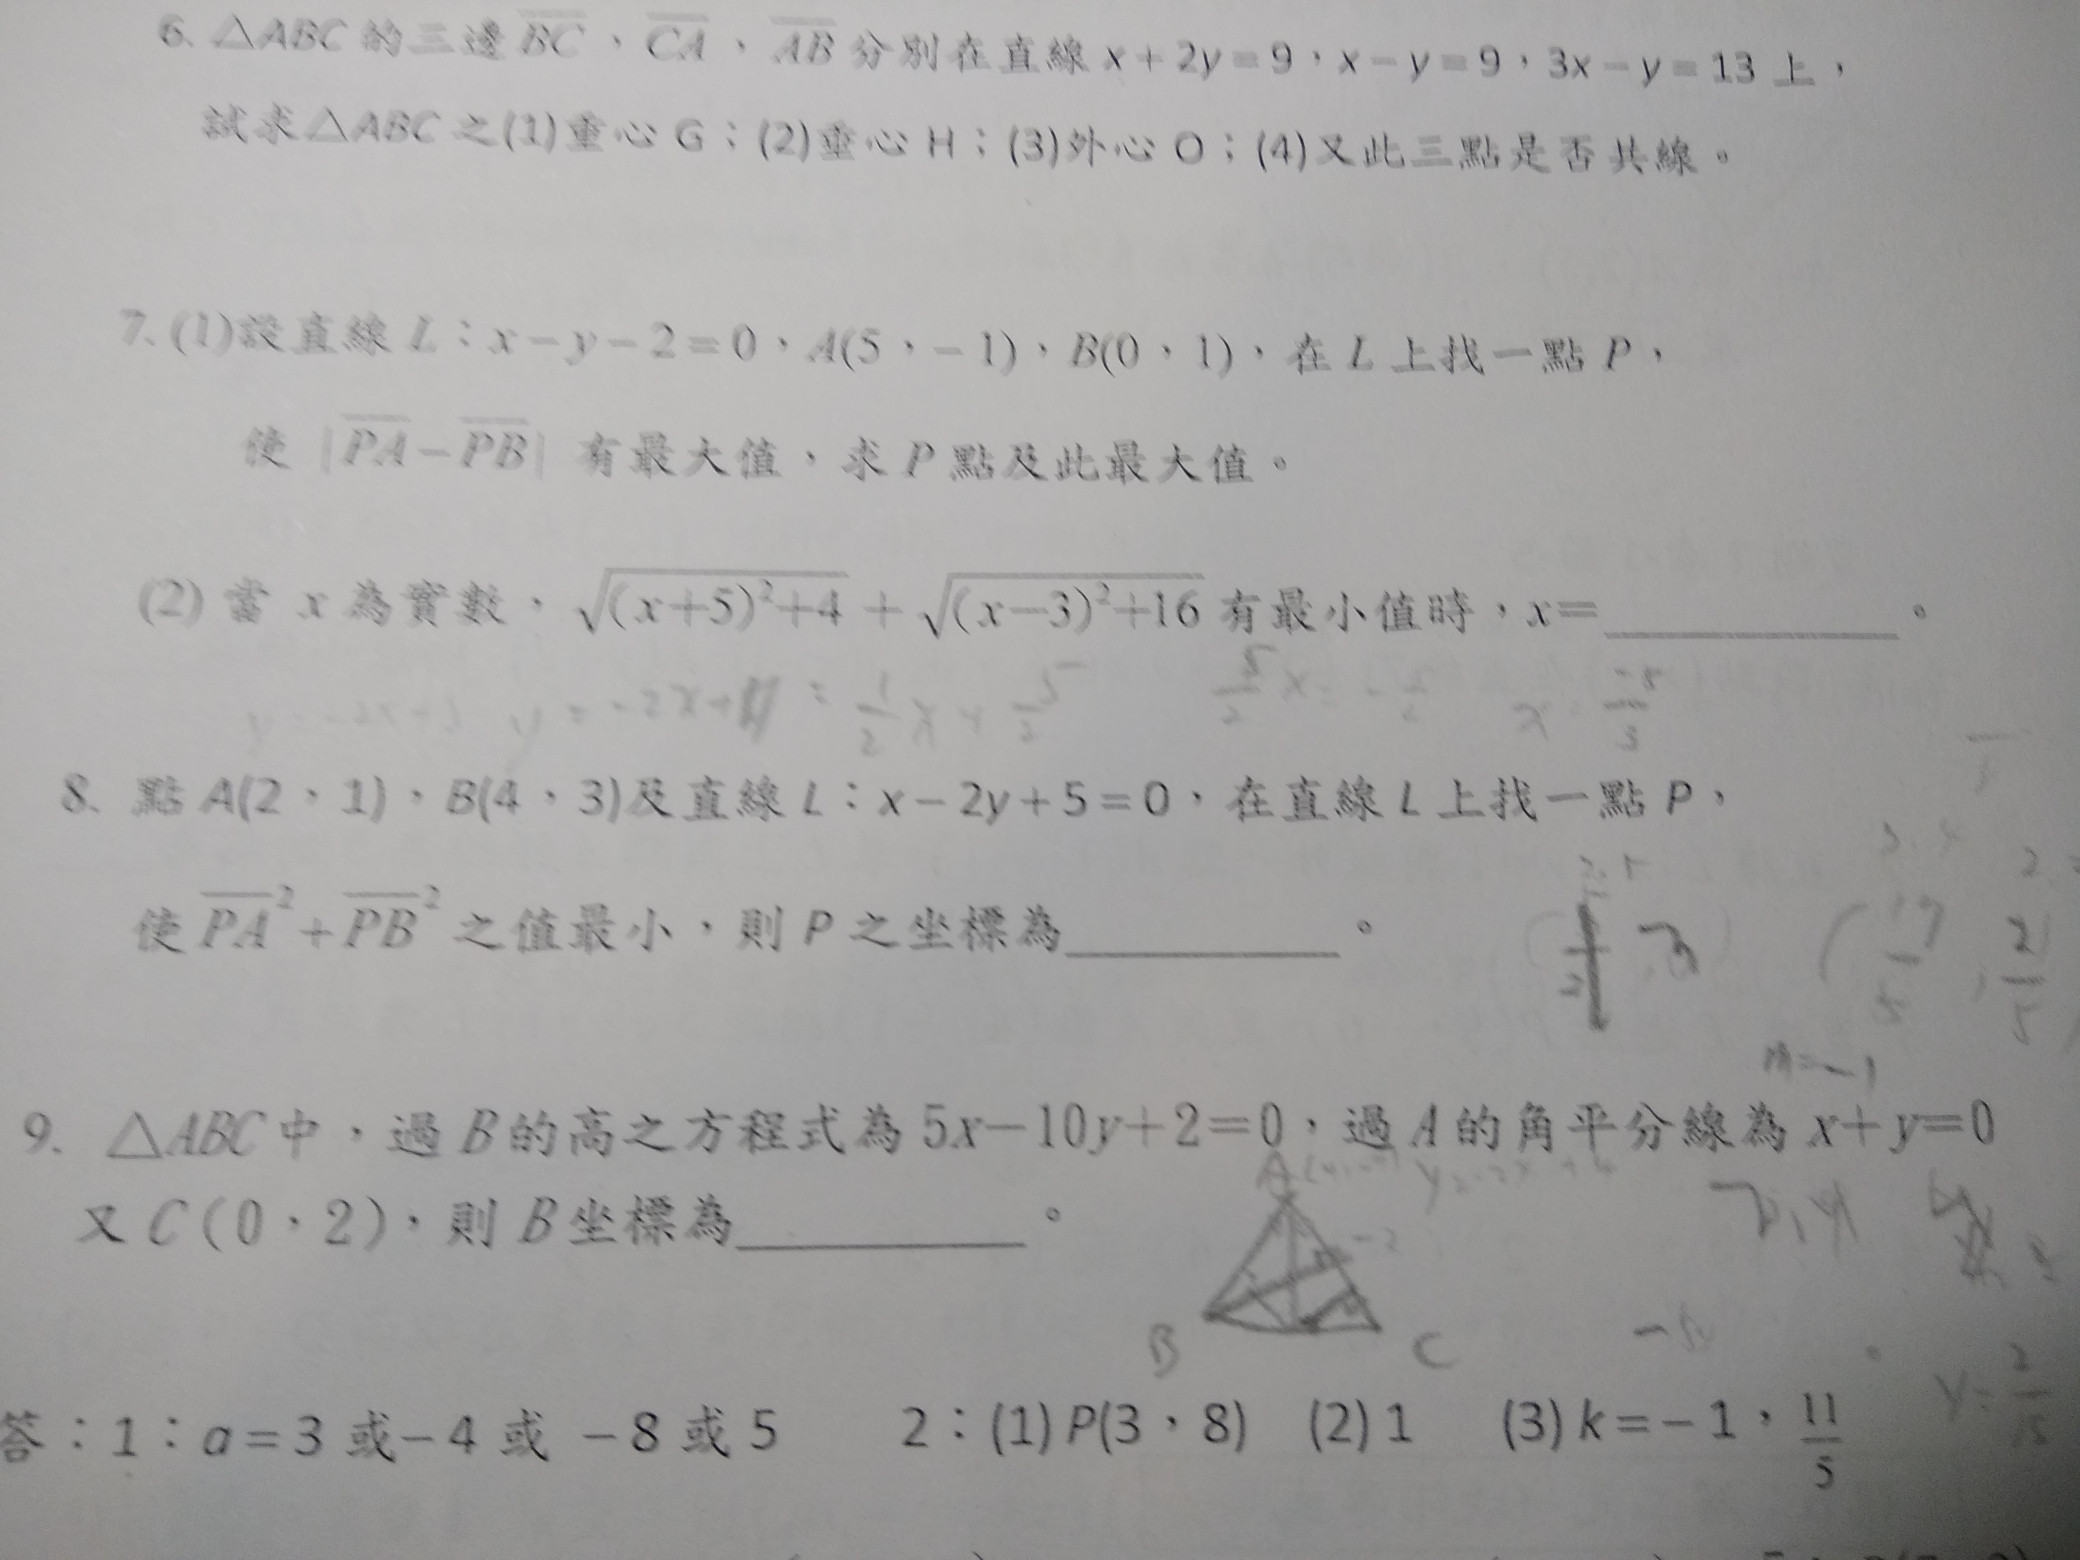 6. △ABC 的三邊 BC，CA，AB 分別在直線 x + 2y = 9，x − y = 9，3x − y = 13 上，
試求△ABC 之(1)重心 G；(2)垂心 H；(3)外心 O；(4)又此三點是否共線。
7. (1)設直線 L：x − y − 2 = 0，A(5，− 1)，B(0，1)，在 L 上找一點 P，
使 |PA − PB| 有最大值，求 P 點及此最大值。
(2) 當 x 為實數，√(x+5)²+4 + √(x−3)²+16 有最小值時，x=＿＿＿＿＿。
8. 點 A(2，1)，B(4，3)及直線 L：x − 2y + 5 = 0，在直線 L 上找一點 P，
使 PA² + PB² 之值最小，則 P 之坐標為＿＿＿＿＿。
m=-1
9. △ABC 中，過 B 的高之方程式為 5x−10y+2=0，過 A 的角平分線為 x+y=0
又 C (0，2)，則 B 坐標為＿＿＿＿＿。
A
B C
答：1：a = 3 或− 4 或 − 8 或 5 2：(1) P(3，8) (2) 1 (3) k = − 1，11/5